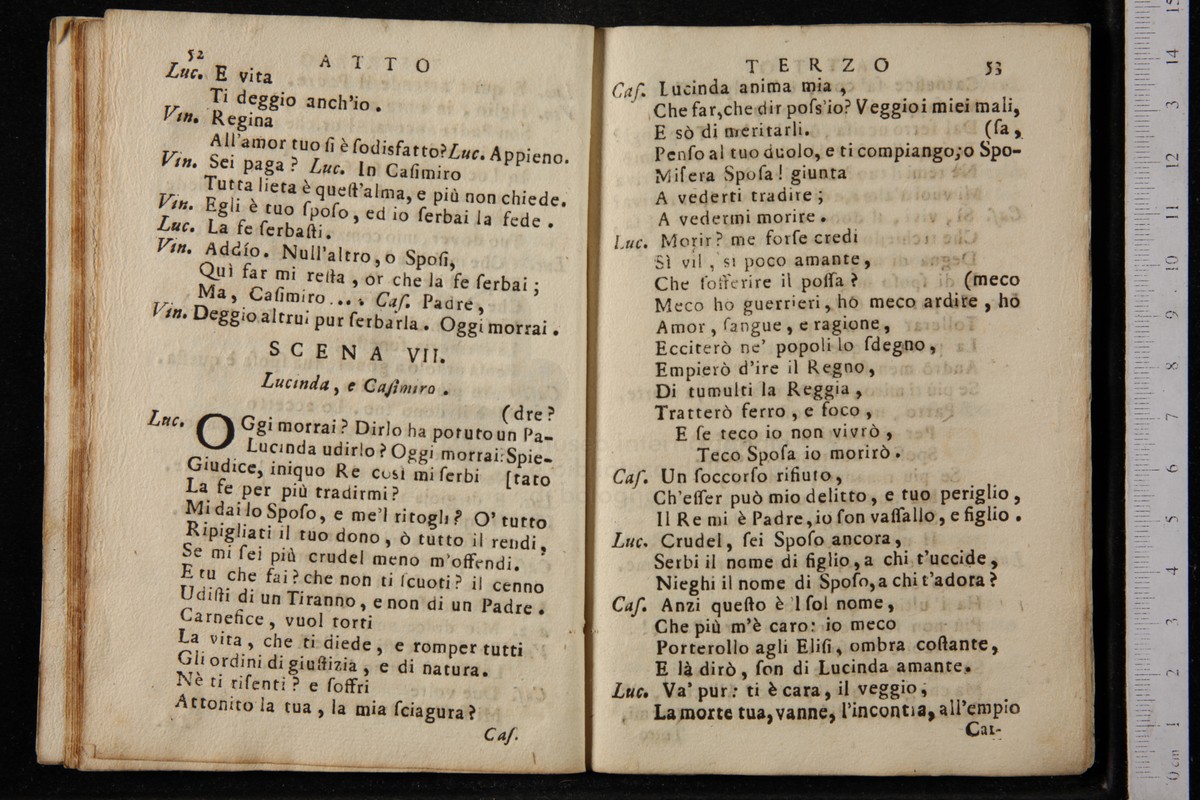 52 ATTO
Luc. E vita
Ti deggio anch'io.
Vin. Regina
All'amor tuo ſi è ſodisfatto? Luc. Appieno.
Vin. Sei paga? Luc. In Caſimiro
Tutta lieta è queſt'alma, e più non chiede.
Vin. Egli è tuo ſpoſo, ed io ſerbai la fede.
Luc. La fe ſerbaſti.
Vin. Addio. Null'altro, o Spoſi,
Quì far mi reſta, or che la fe ſerbai;
Ma, Caſimiro.... Caſ. Padre,
Vin. Deggio altrui pur ſerbarla. Oggi morrai.
SCENA VII.
Lucinda, e Caſimiro.
(dre?
Luc. OGgi morrai? Dirlo ha potuto un Pa-
Lucinda udirlo? Oggi morrai: Spie-
Giudice, iniquo Re così mi ſerbi [tato
La fe per più tradirmi?
Mi dai lo Spoſo, e me'l ritogli? O' tutto
Ripigliati il tuo dono, ò tutto il rendi,
Se mi ſei più crudel meno m'offendi.
E tu che fai? che non ti ſcuoti? il cenno
Udiſti di un Tiranno, e non di un Padre.
Carnefice, vuol torti
La vita, che ti diede, e romper tutti
Gli ordini di giuſtizia, e di natura.
Nè ti riſenti? e ſoffri
Attonito la tua, la mia ſciagura?
Caſ.
TERZO 53
Caſ. Lucinda anima mia,
Che far, che dir poſs'io? Veggio i miei mali,
E sò di meritarli. (ſa,
Penſo al tuo duolo, e ti compiango; o Spo-
Miſera Spoſa! giunta
A vederti tradire;
A vedermi morire.
Luc. Morir? me forſe credi
Sì vil, sì poco amante,
Che ſofferire il poſſa? (meco
Meco ho guerrieri, hò meco ardire, hò
Amor, ſangue, e ragione,
Ecciterò ne' popoli lo ſdegno,
Empierò d'ire il Regno,
Di tumulti la Reggia,
Tratterò ferro, e foco,
E ſe teco io non vivrò,
Teco Spoſa io morirò.
Caſ. Un ſoccorſo rifiuto,
Ch'eſſer può mio delitto, e tuo periglio,
Il Re mi è Padre, io ſon vaſſallo, e figlio.
Luc. Crudel, ſei Spoſo ancora,
Serbi il nome di figlio, a chi t'uccide,
Nieghi il nome di Spoſo, a chi t'adora?
Caſ. Anzi queſto è 'l ſol nome,
Che più m'è caro: io meco
Porterollo agli Eliſi, ombra coſtante,
E là dirò, ſon di Lucinda amante.
Luc. Va' pur: ti è cara, il veggio,
La morte tua, vanne, l'incontra, all'empio
Car-